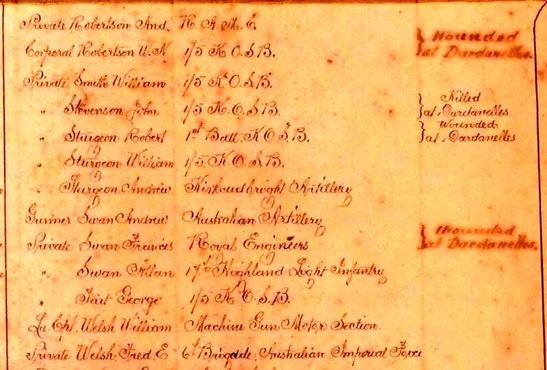 Private Robertson And. R. A. M. C.
Corporal Robertson W. H. 1/5 K. O. S. B. } Wounded at Dardanelles.
Private Smith William 1/5 K. O. S. B.
" Stevenson John 1/5 K. O. S. B. } Killed at Dardanelles
" Sturgeon Robert 1st Batt. K. O. S. B. } Wounded at Dardanelles
" Sturgeon William 1/5 K. O. S. B.
" Sturgeon Andrew Kirkcudbright Artillery
Gunner Swan Andrew Australian Artillery
Private Swan Francis Royal Engineers } Wounded at Dardanelles.
" Swan Allan 17th Highland Light Infantry
" Tait George 1/5 K. O. S. B.
La. Cpl. Welsh William Machine Gun Motor Section.
Private Welsh Fred. E. 6th Brigade, Australian Imperial Force